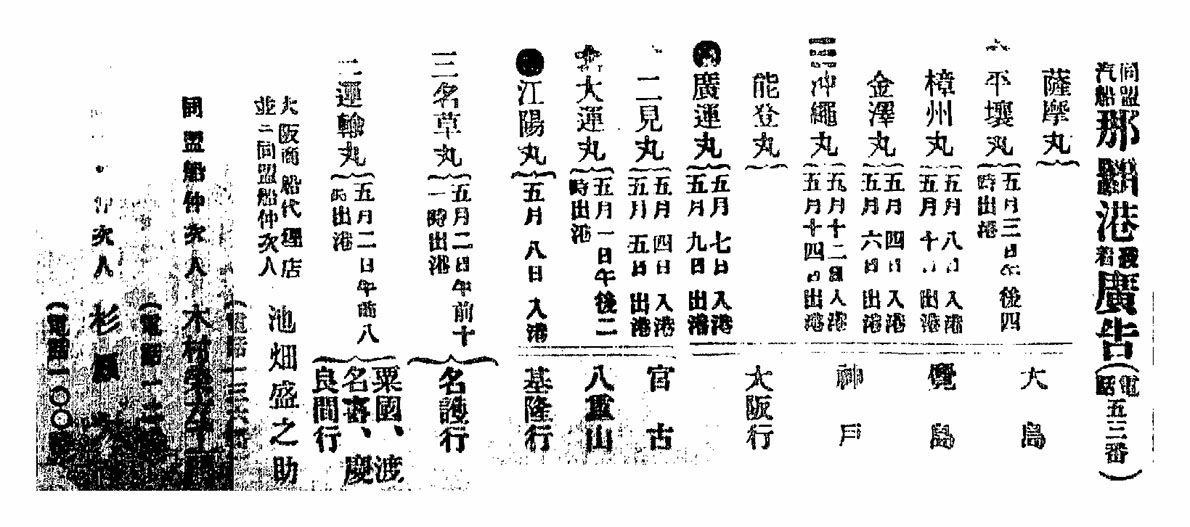 同盟汽船 那覇港發着廣告(電話五三番)
薩摩丸
平壤丸 五月三日午後四時出港
樟州丸 五月八日入港 五月十日出港
金澤丸 五月四日入港 五月六日出港
沖繩丸 五月十二日入港 五月十四日出港
能登丸
廣運丸 五月七日入港 五月九日出港
大島
鹿島
神戸
大阪行
二見丸 五月四日入港 五月五日出港
大運丸 五月一日午後二時出港
江陽丸 五月八日入港
宮古
八重山
基隆行
三名草丸 五月二日午前十一時出港
名護行
運輸丸 五月二日午前八時出港
粟國、渡名喜、慶良間行
大阪商船代理店
並ニ同盟船仲次人
池畑盛之助
(電話一三六番)
同盟船仲次人 木村榮左
(電話一
仲次人 杉
(電話一〇〇